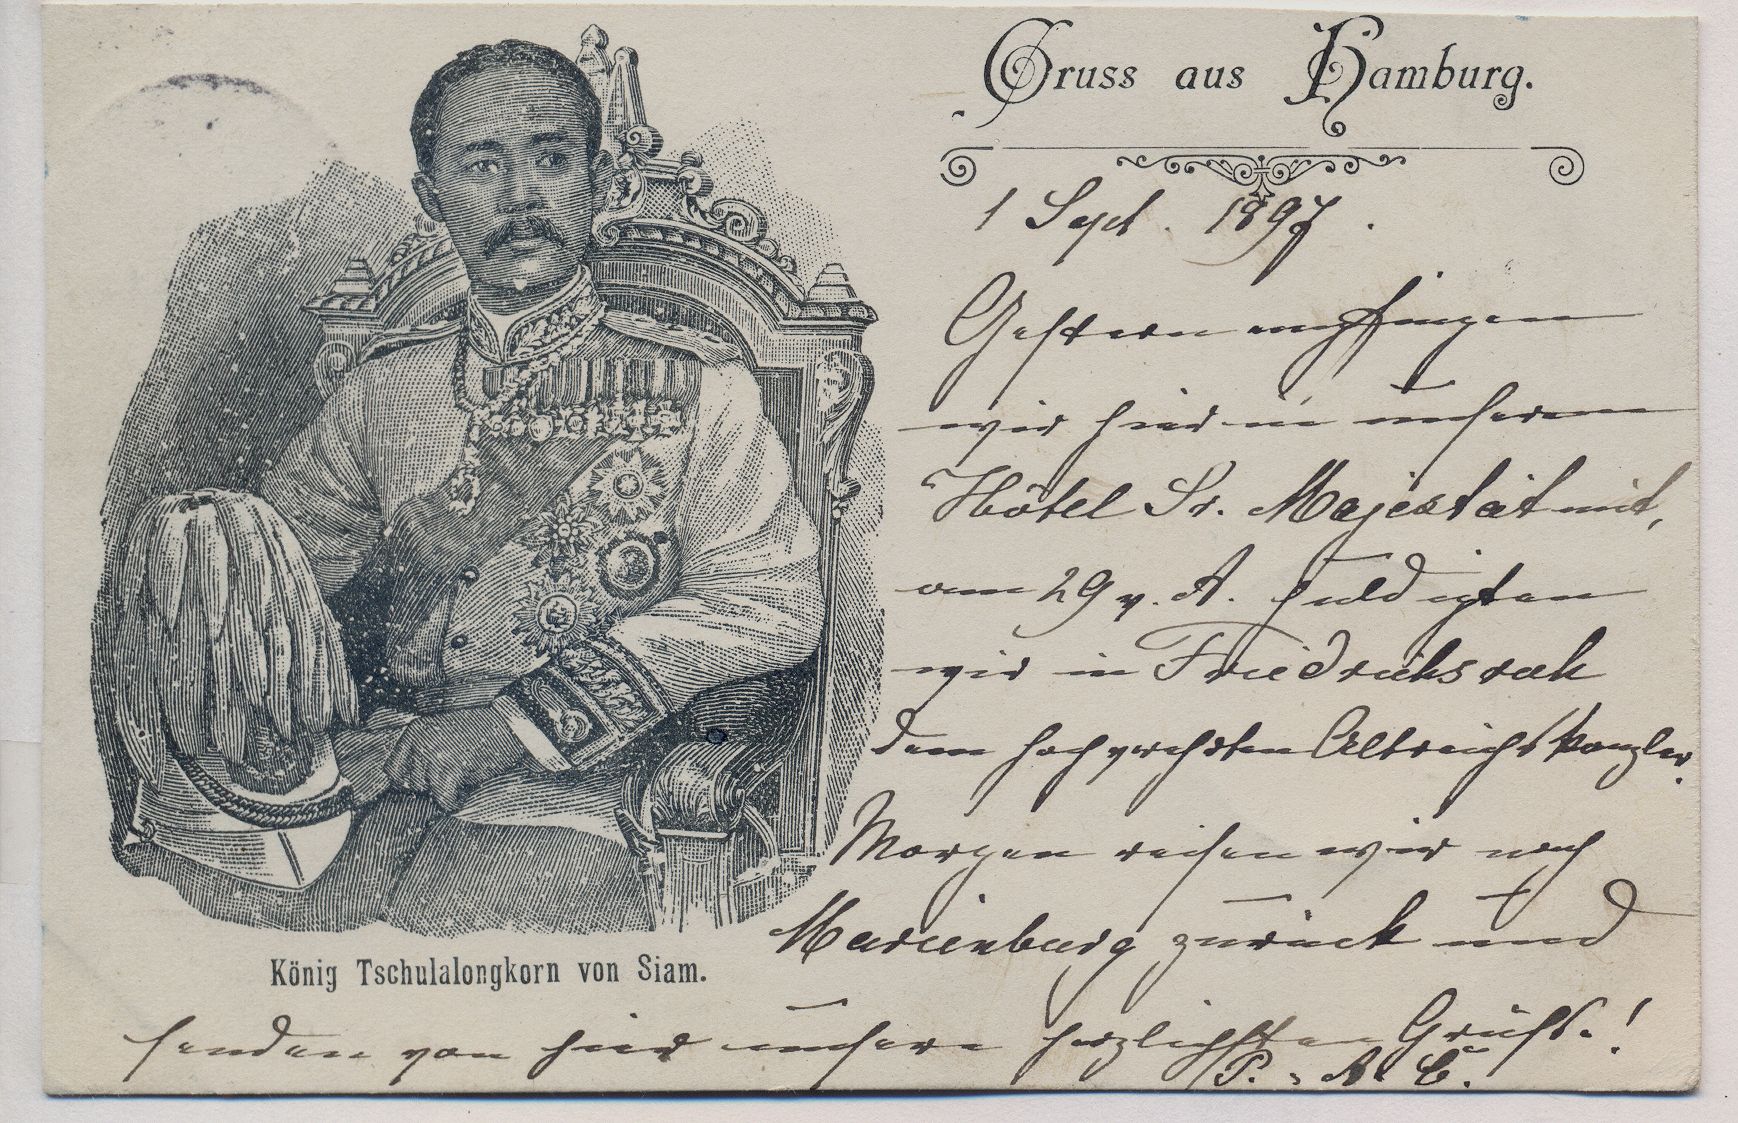 Gruss aus Hamburg.
1 Sept. 1897.
Gestern empfingen
wir hier in unserem
Hôtel Sr. Majestät mit,
am 29 v. M. huldigten
wir in Friedrichsruh
dem hochverehrten Altreichskanzler.
Morgen reisen wir nach
Marienburg zurück und
König Tschulalongkorn von Siam.
senden von hier unsere herzlichsten Grüße!
P. A. C.